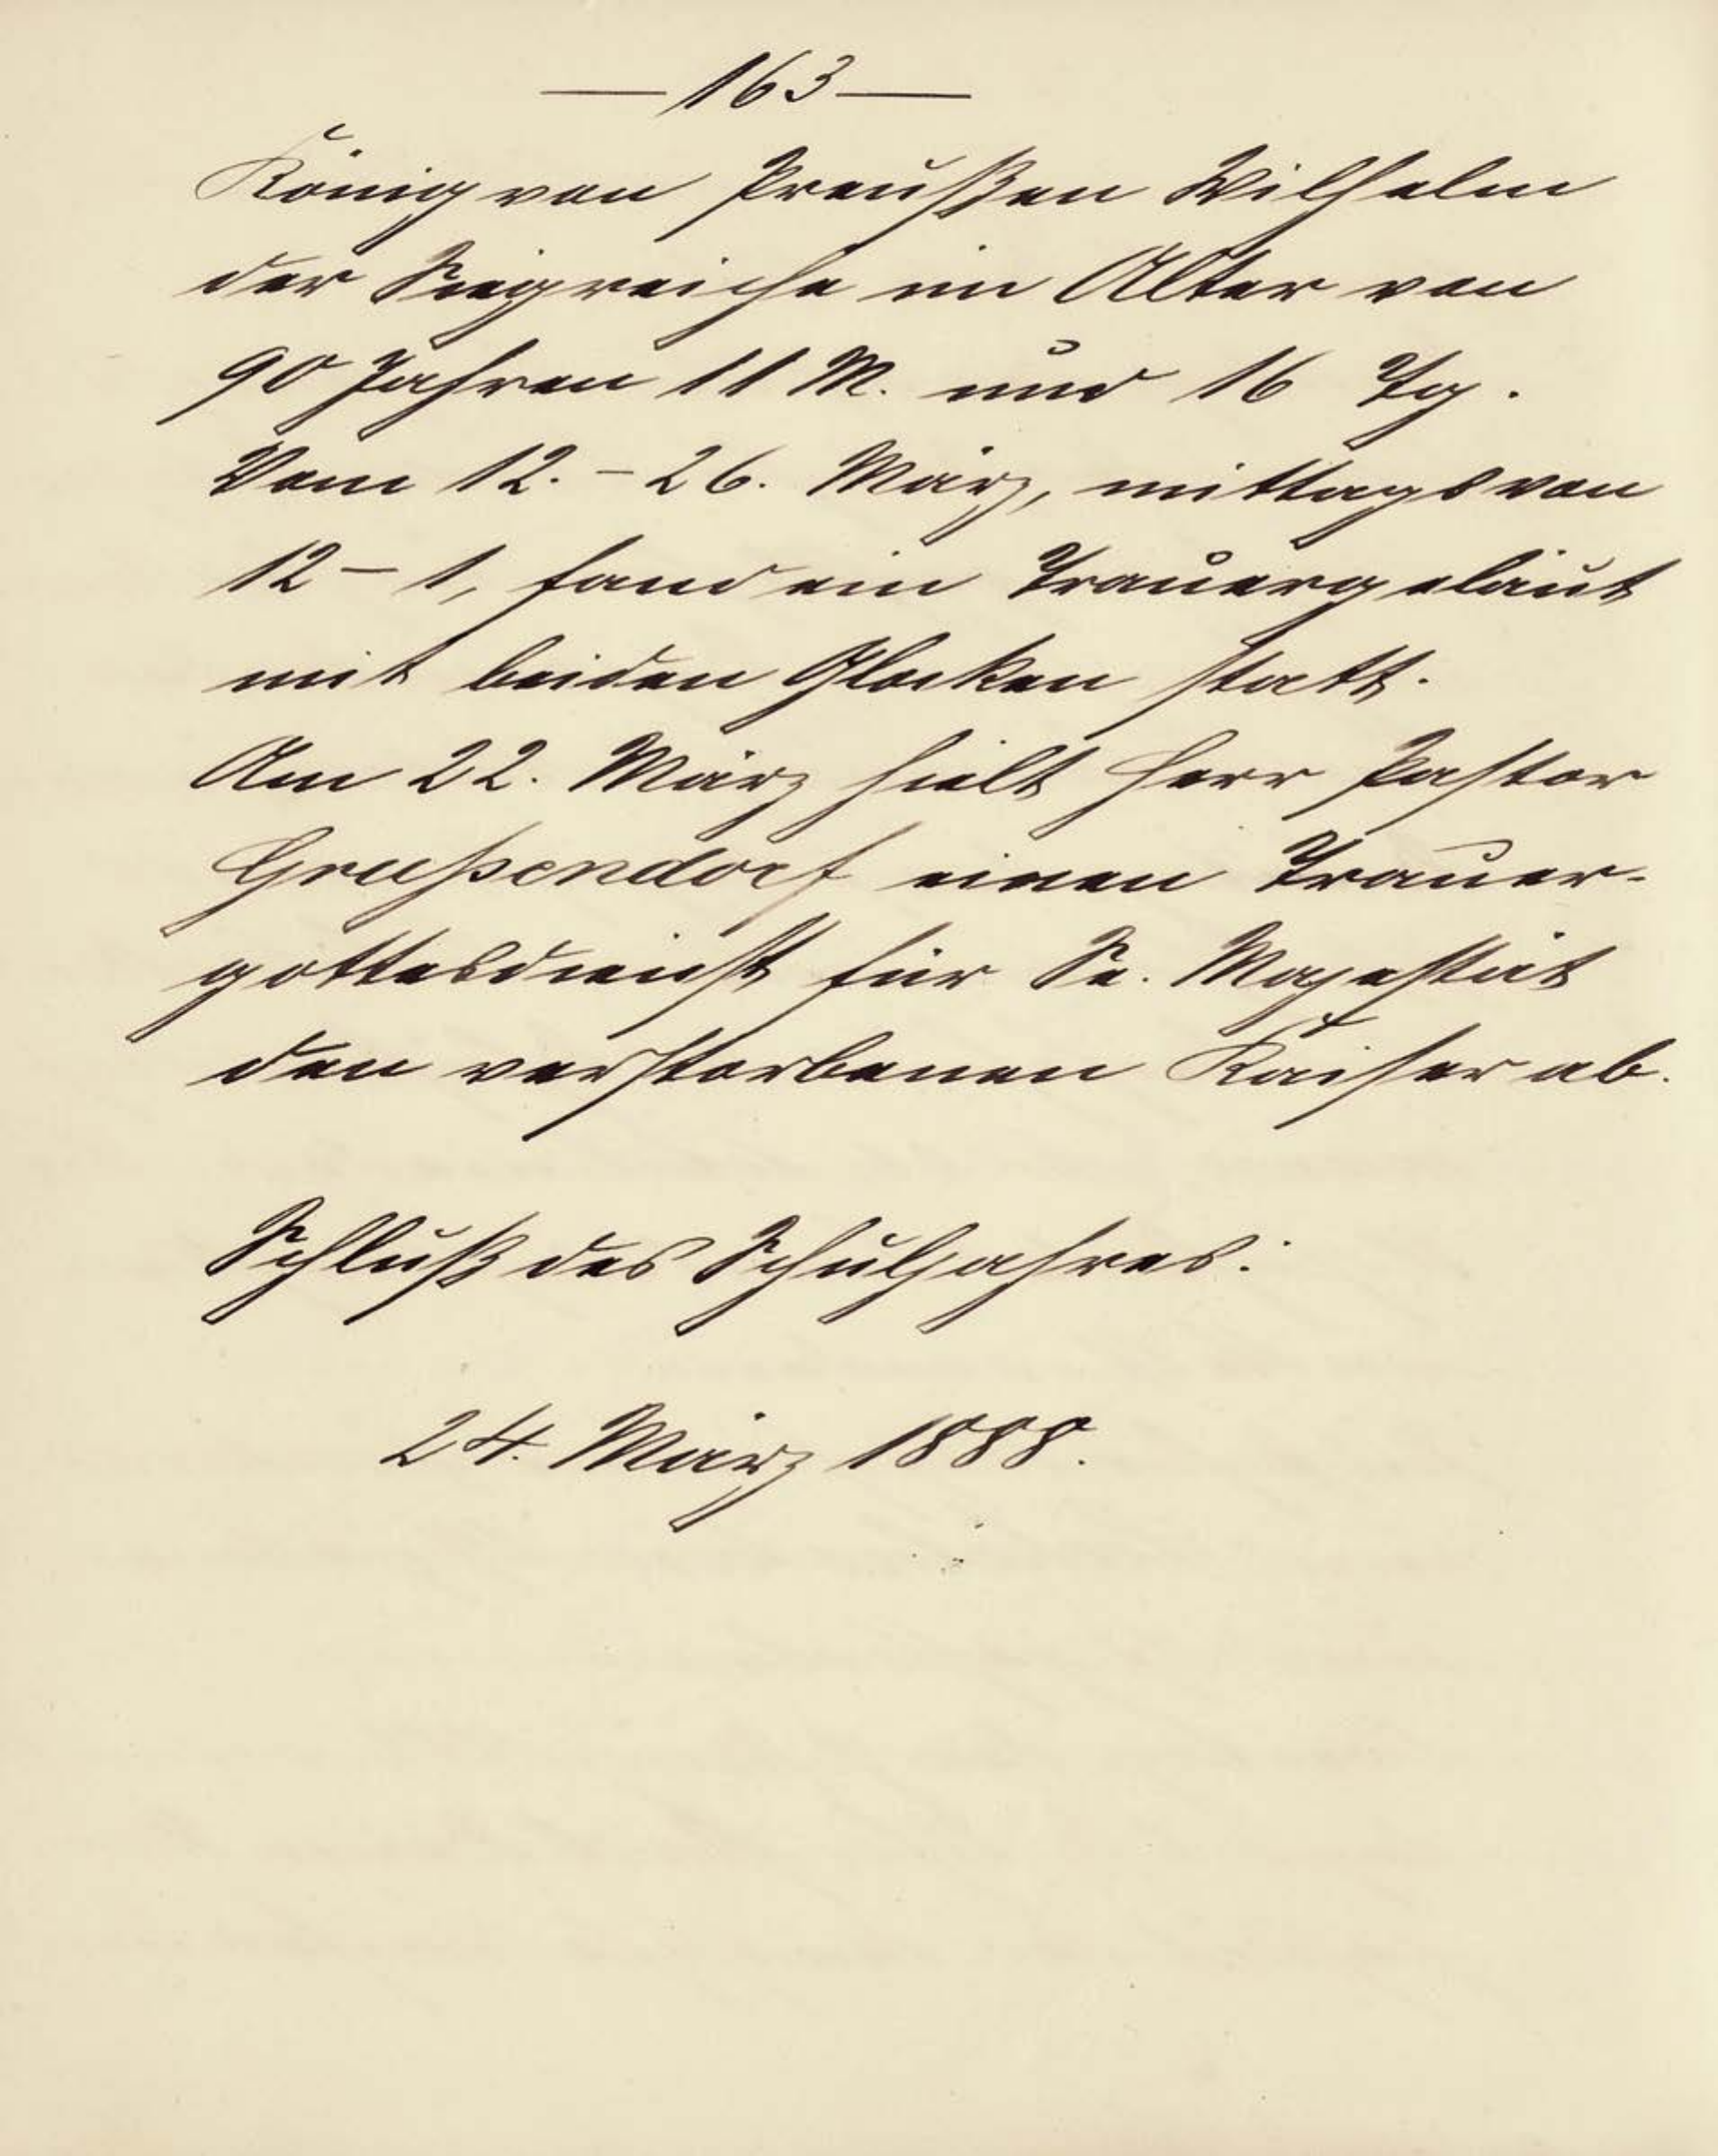 — 163 —
König von Preußen Wilhelm
der Siegreiche im Alter von
90 Jahren 11 M. und 16 Tg.
Vom 12. - 26. März, mittags von
12 - 1, fand ein Trauergeläut
mit beiden Glocken statt.
Am 22. März hielt Herr Pastor
Grußendorf einen Trauer-
gottesdienst für Se. Majestät
den verstorbenen Kaiser ab.
Schluß des Schuljahres:
24. März 1888.